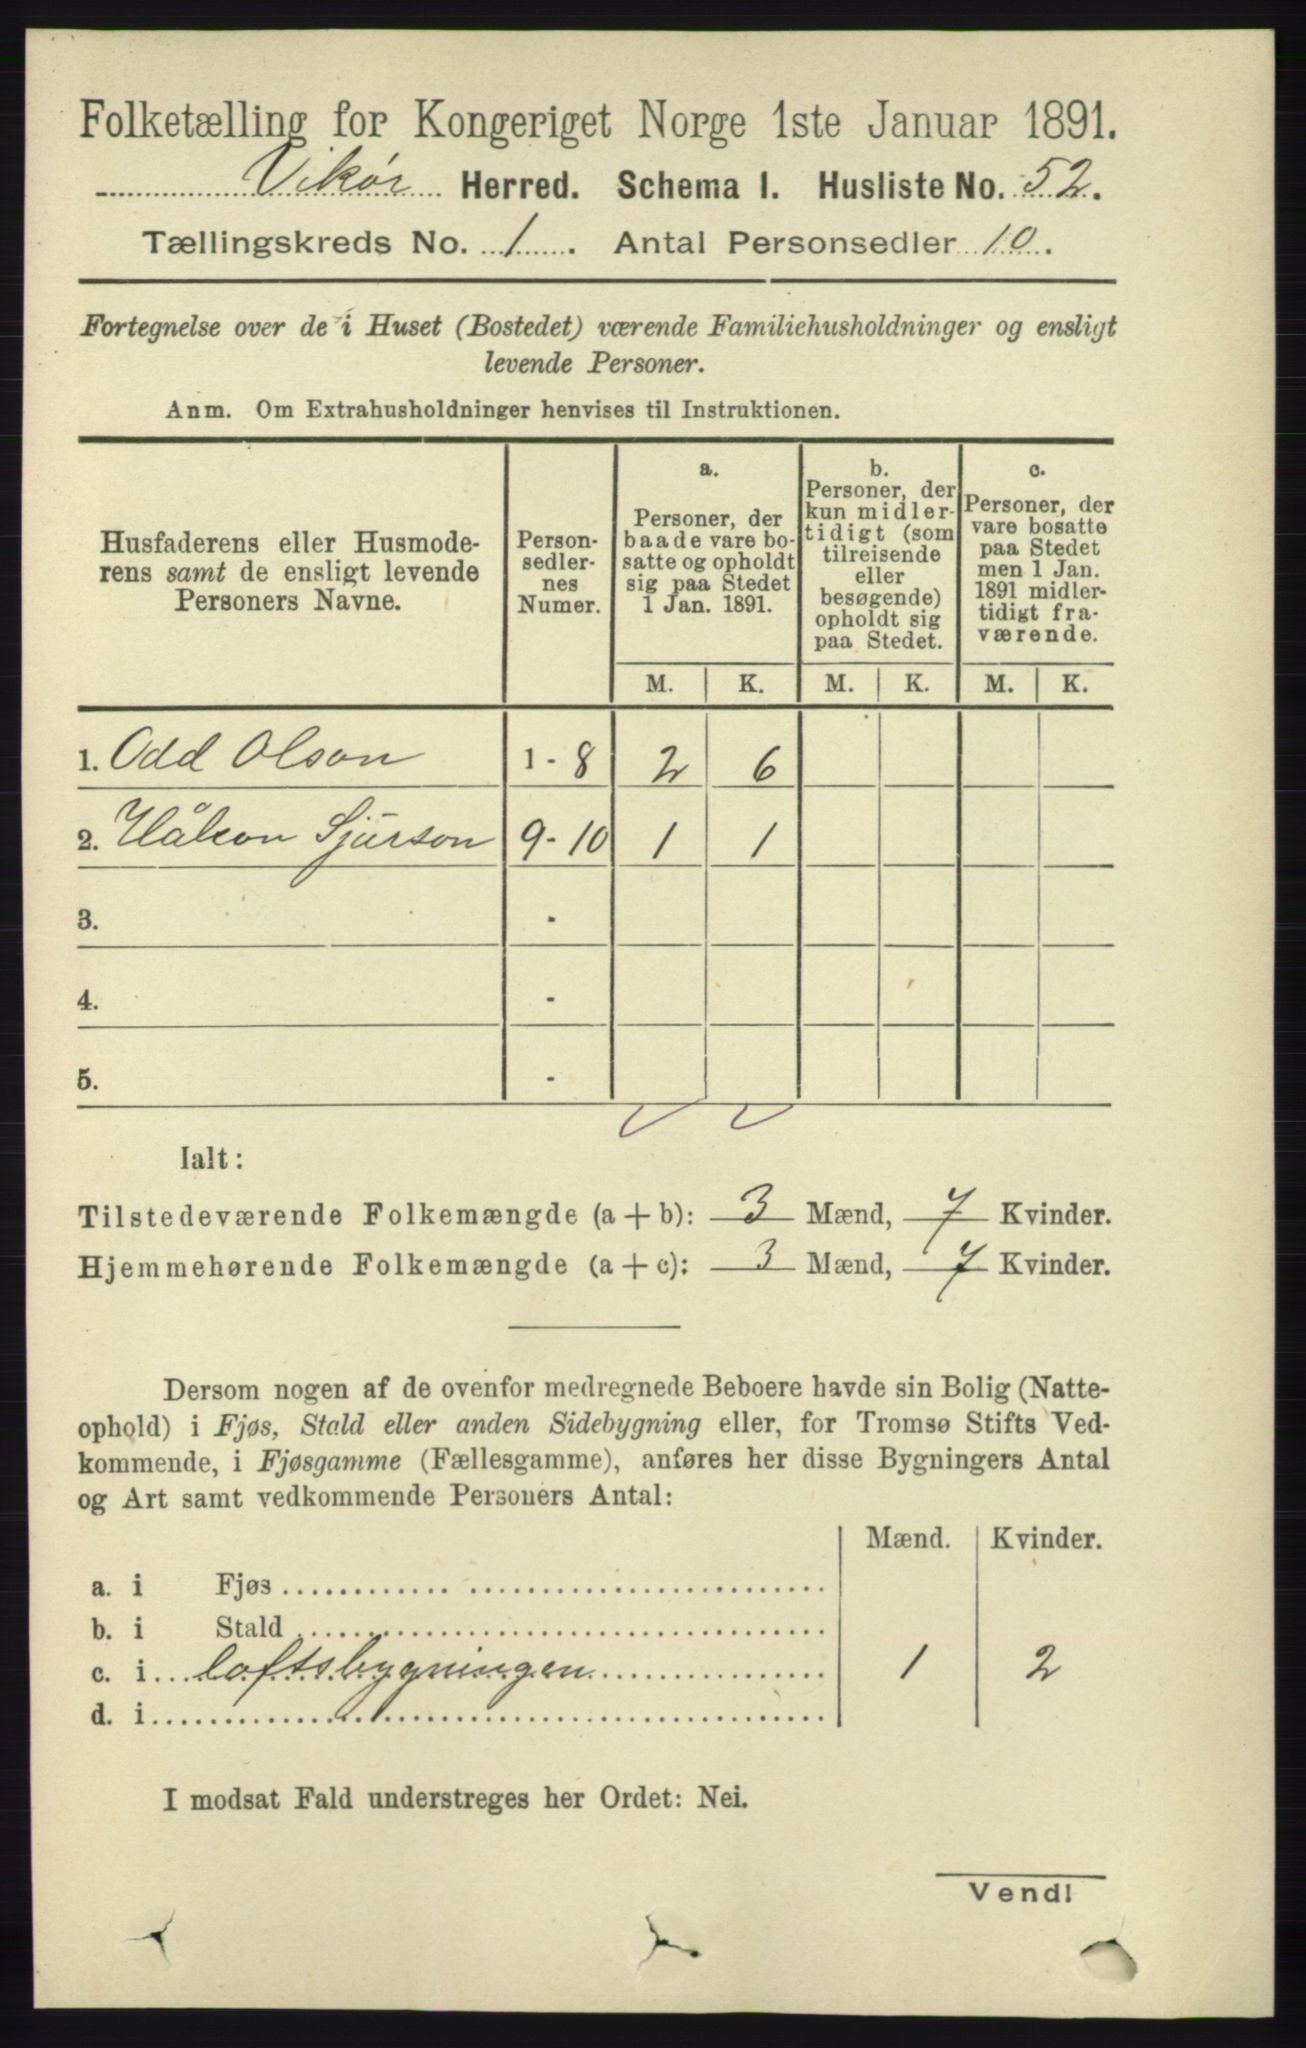 Folketælling for Kongeriget Norge 1ste Januar 1891.
Vikør Herred. Schema I. Husliste No. 52.
Tællingskreds No. 1. Antal Personsedler 10.
Fortegnelse over de i Huset (Bostedet) værende Familiehusholdninger og ensligt
levende Personer.
Anm. Om Extrahusholdninger henvises til Instruktionen.
Husfaderens eller Husmode-
rens samt de ensligt levende
Personers Navne.
Person-
sedler-
nes
Numer.
a.
Personer, der
baade vare bo-
satte og opholdt
sig paa Stedet
1 Jan. 1891.
b.
Personer, der
kun midler-
tidigt (som
tilreisende
eller
besøgende)
opholdt sig
paa Stedet.
c.
Personer, der
vare bosatte
paa Stedet
men 1 Jan.
1891 midler-
tidigt fra-
værende.
M. K. M. K. M. K.
1. Odd Olson 1-8 2 6
2. Håkon Sjurson 9-10 1 1
3. -
4. -
5. -
Ialt:
Tilstedeværende Folkemængde (a + b): 3 Mænd, 7 Kvinder.
Hjemmehørende Folkemængde (a + c): 3 Mænd, 7 Kvinder.
Dersom nogen af de ovenfor medregnede Beboere havde sin Bolig (Natte-
ophold) i Fjøs, Stald eller anden Sidebygning eller, for Tromsø Stifts Ved-
kommende, i Fjøsgamme (Fællesgamme), anføres her disse Bygningers Antal
og Art samt vedkommende Personers Antal:
Mænd. Kvinder.
a. i Fjøs
b. i Stald
c. i loftsbygningen 1 2
d. i
I modsat Fald understreges her Ordet: Nei.
Vend!